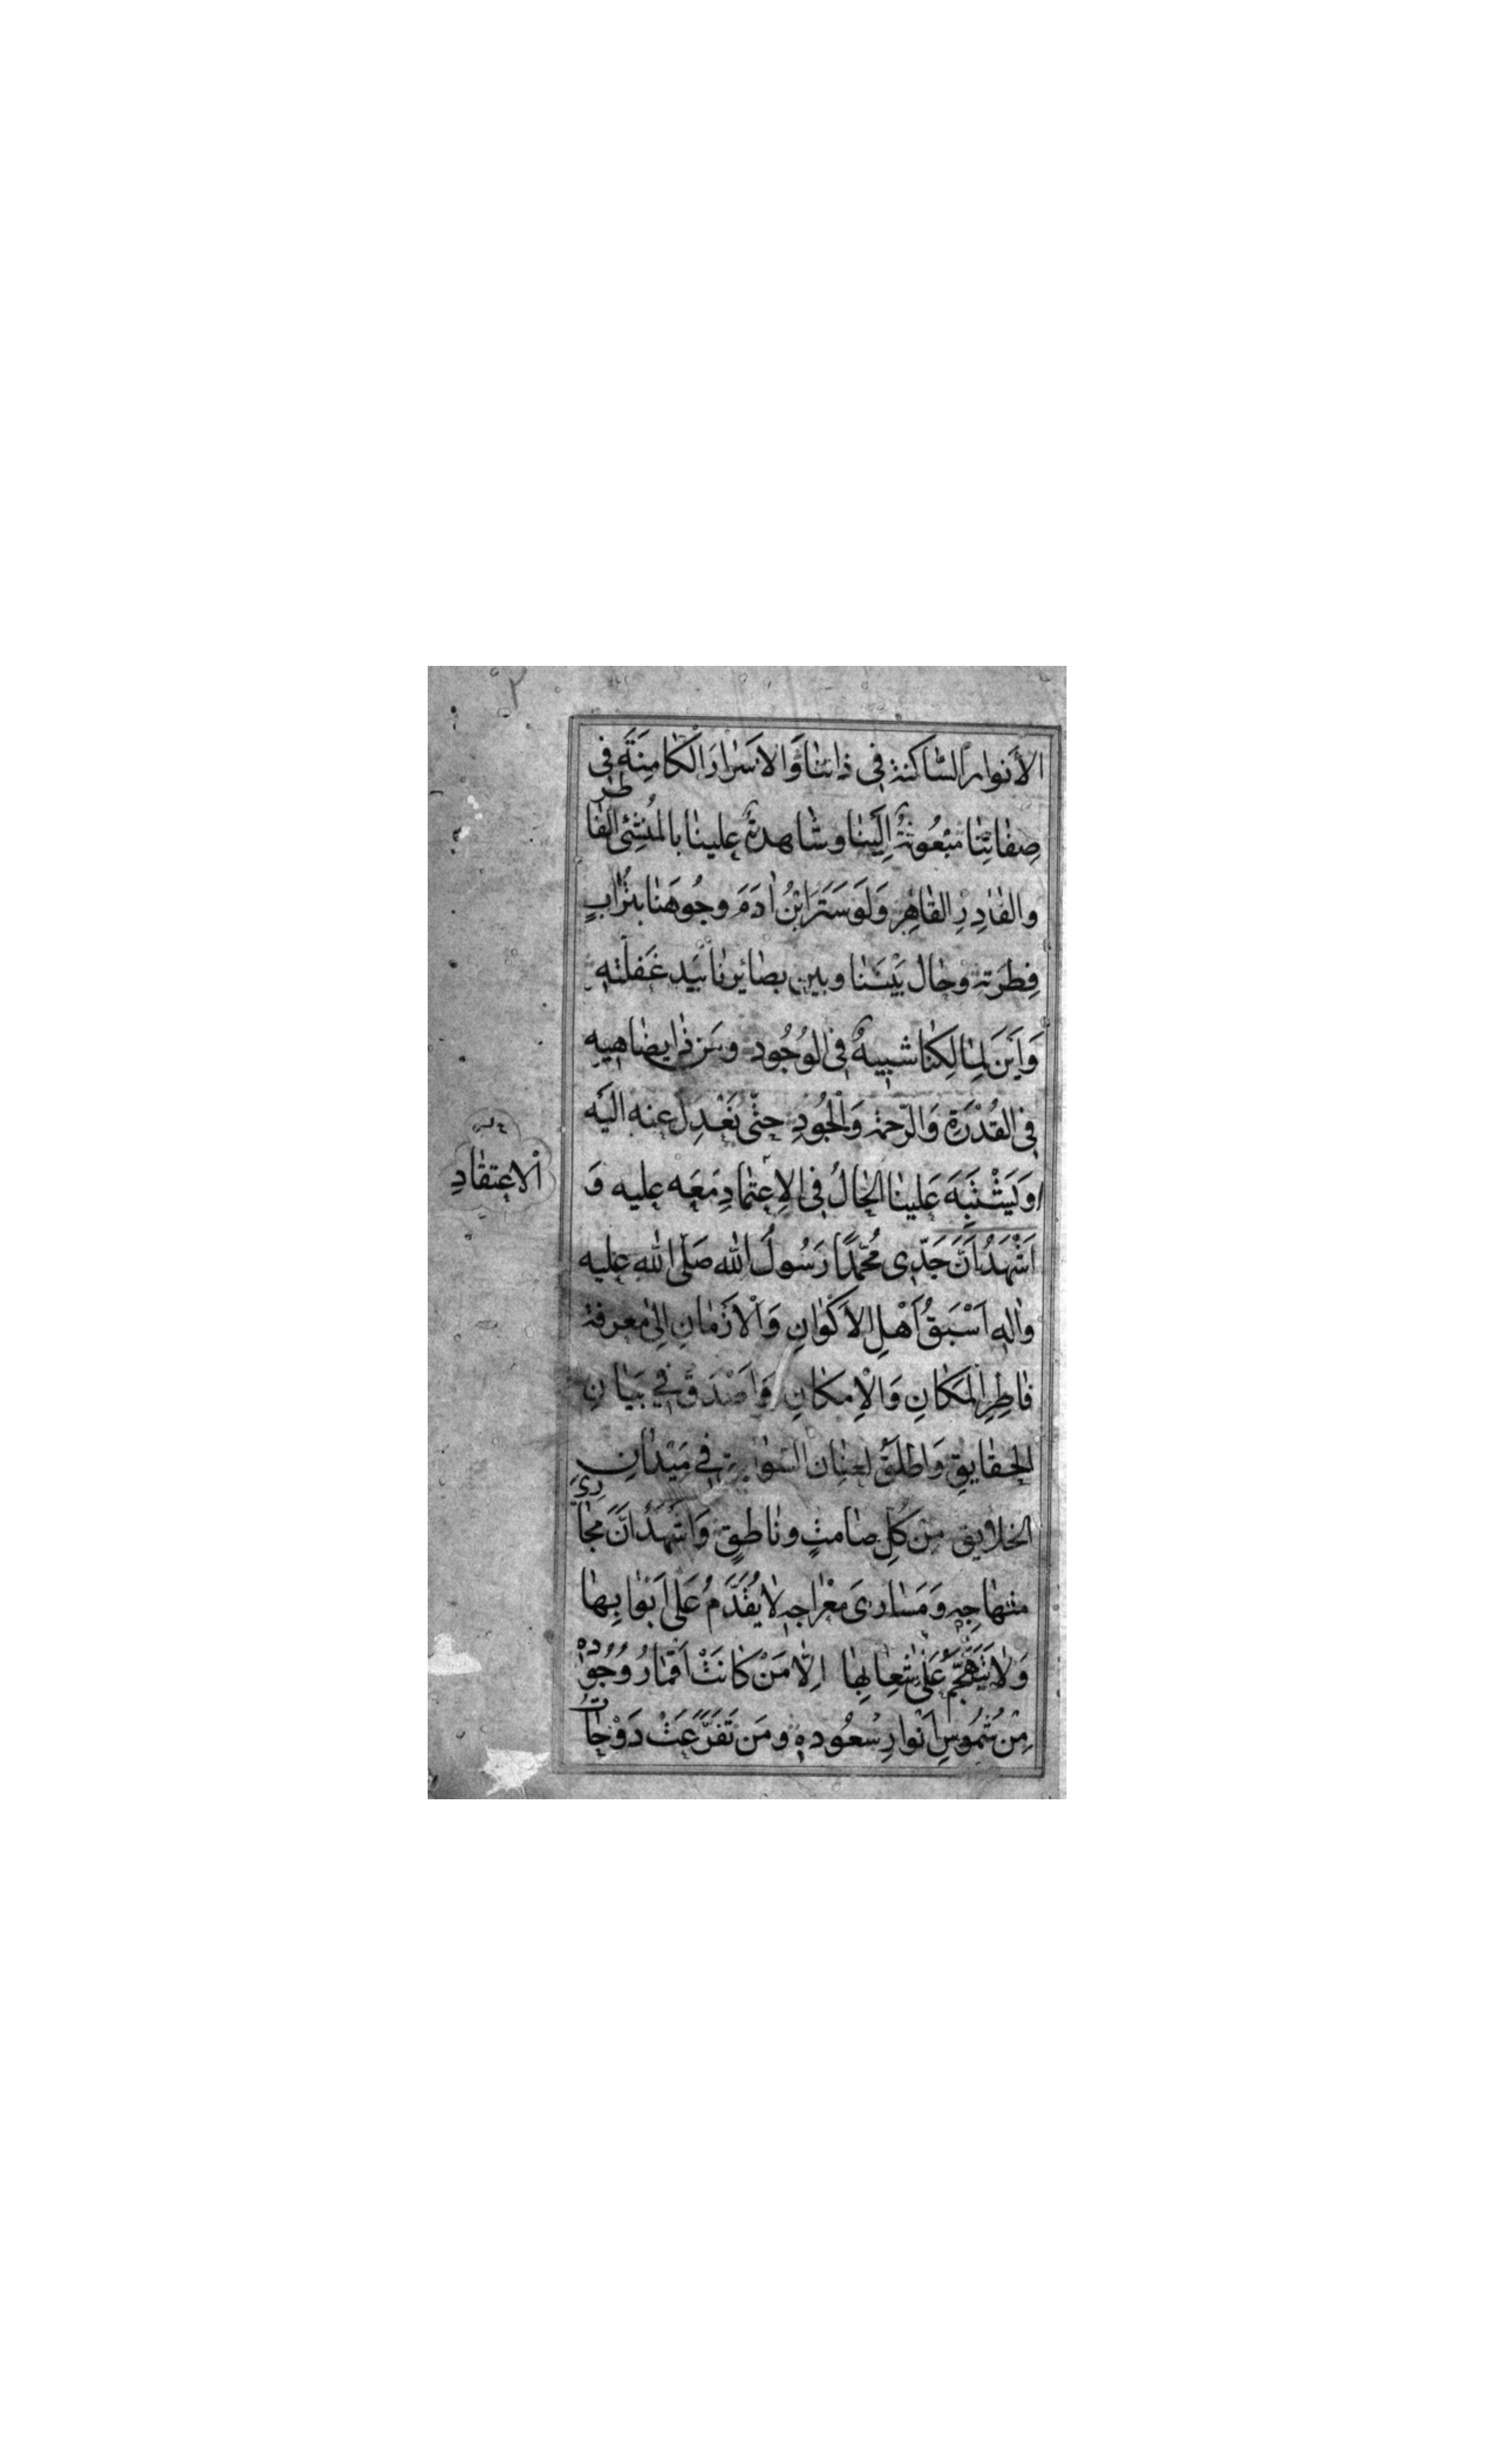 ٢
الأَنوارِ السّاكنة في ذاتنا وَالاَسْرارَ الْكامِنَةَ فى
صِفاتِنا مَبْعُوثَةٌ اِلَيْنا وشاهدةٌ علينا بالمُنشِئ الفا
طر
والقادِرِ القاهِرِ وَلَو سَتَرَ ابْنُ ادَمَ وجُوهَنا بتُرابِ
فِطرَتِهِ وحال بَيْنَنا وبين بصائرنا بيَد غَفلَتِهِ
وَاَيْنَ لِمالِكنا شبيهٌ فى الوُجُودِ ومَن ذا يضاهيه
فى القُدْرَةِ وَالرّحمة وَالْجُودِ حتّى نَعْدِلَ عنه اليَه
اَو يَشْتَبِهَ عَلينا الحالُ فى الاِعتمادِ مَعَه عليه وَ
اَشْهَدُ اَنَّ جَدّى مُحَمَّدًا رَسُولُ الله صَلّى الله عليه
واله اَسْبَقُ اَهْلِ الاَكْوانِ وَالاَزْمانِ اِلى معرفة
فاطِرِ المَكانِ وَالْاِمكانِ وَاَصْدَقُ فى بَيانِ
الحقايِقِ وَاَطلَقُ لعِنان السَّوابِقِ فى مَيْدانِ
الخلايق مِن كُلِّ صامتٍ وناطقٍ وَاَشهَدُ اَنَّ مَجا
رِىَ
منهاجِهِ وَمَسارىَ مِعْراجِهِ لا يُقَدَّمُ عَلى اَبْوابِها
وَلا يَتَهَجَّمُ عَلى شِعابِها اِلّا مَنْ كانَتْ اَقمارُ وُجُو
دِهِ
مِنْ شُمُوسِ اَنْوارِ سُعُودِهِ ومَن تَفَرَّعَتْ دَوْحا
تُ
الاعتقادِ